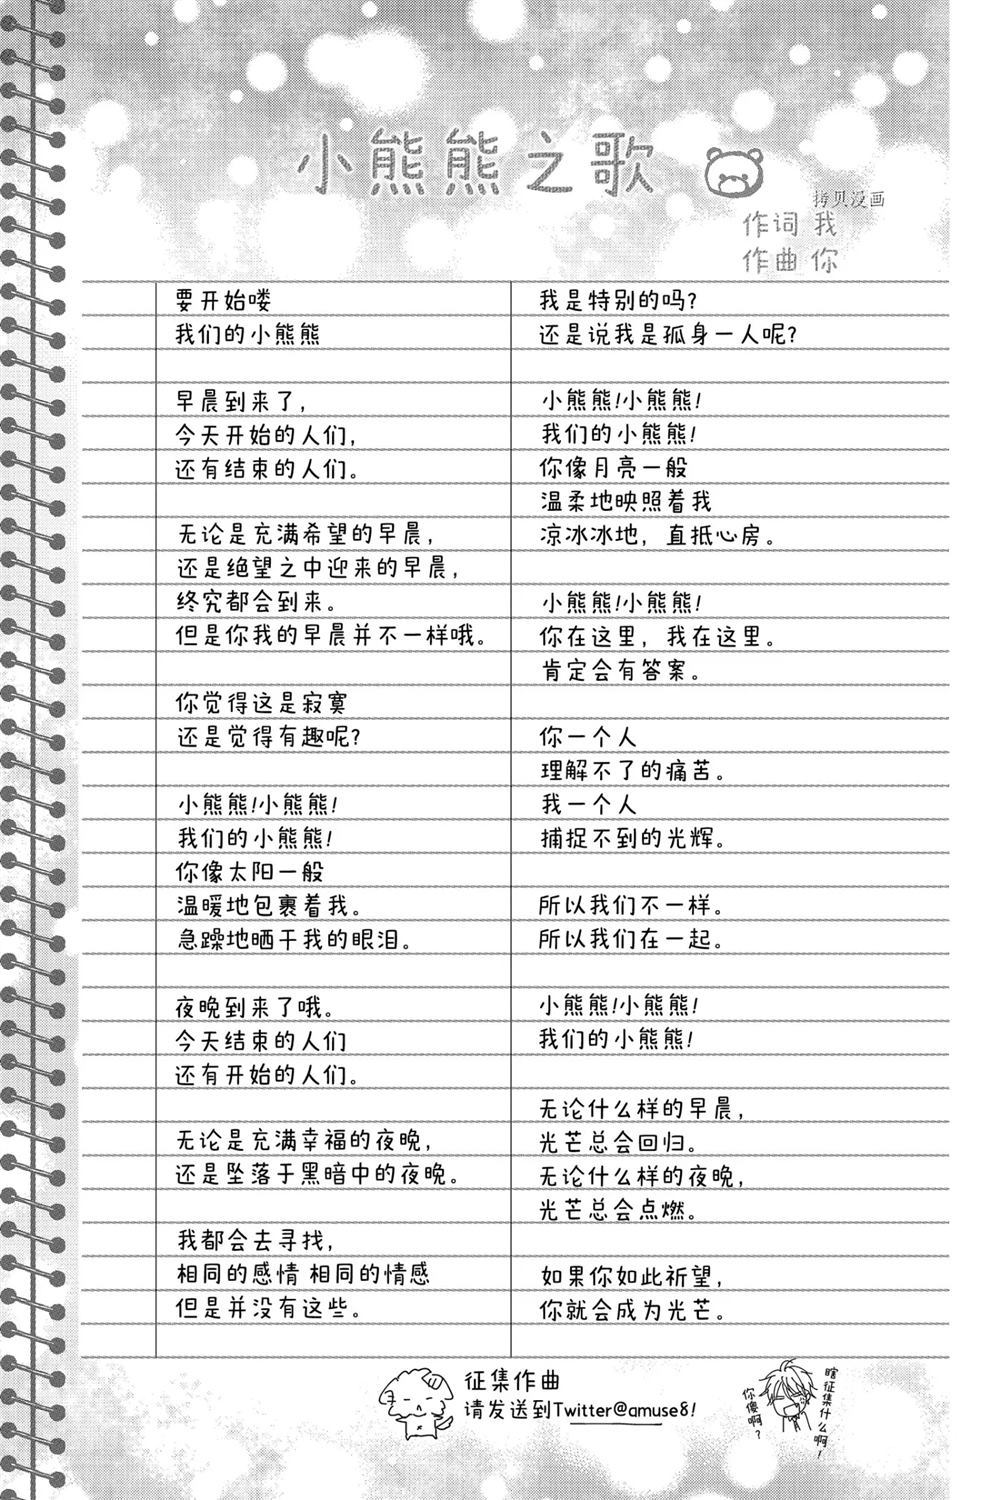 小熊熊之歌
拷贝漫画
作词 我
作曲 你
要开始喽
我们的小熊熊
早晨到来了，
今天开始的人们，
还有结束的人们。
无论是充满希望的早晨，
还是绝望之中迎来的早晨，
终究都会到来。
但是你我的早晨并不一样哦。
你觉得这是寂寞
还是觉得有趣呢?
小熊熊!小熊熊!
我们的小熊熊!
你像太阳一般
温暖地包裹着我。
急躁地晒干我的眼泪。
夜晚到来了哦。
今天结束的人们
还有开始的人们。
无论是充满幸福的夜晚，
还是坠落于黑暗中的夜晚。
我都会去寻找，
相同的感情 相同的情感
但是并没有这些。
我是特别的吗?
还是说我是孤身一人呢?
小熊熊!小熊熊!
我们的小熊熊!
你像月亮一般
温柔地映照着我
凉冰冰地，直抵心房。
小熊熊!小熊熊!
你在这里，我在这里。
肯定会有答案。
你一个人
理解不了的痛苦。
我一个人
捕捉不到的光辉。
所以我们不一样。
所以我们在一起。
小熊熊!小熊熊!
我们的小熊熊!
无论什么样的早晨，
光芒总会回归。
无论什么样的夜晚，
光芒总会点燃。
如果你如此祈望，
你就会成为光芒。
征集作曲
请发送到Twitter@amuse8!
瞎征集什么啊!
你傻啊?